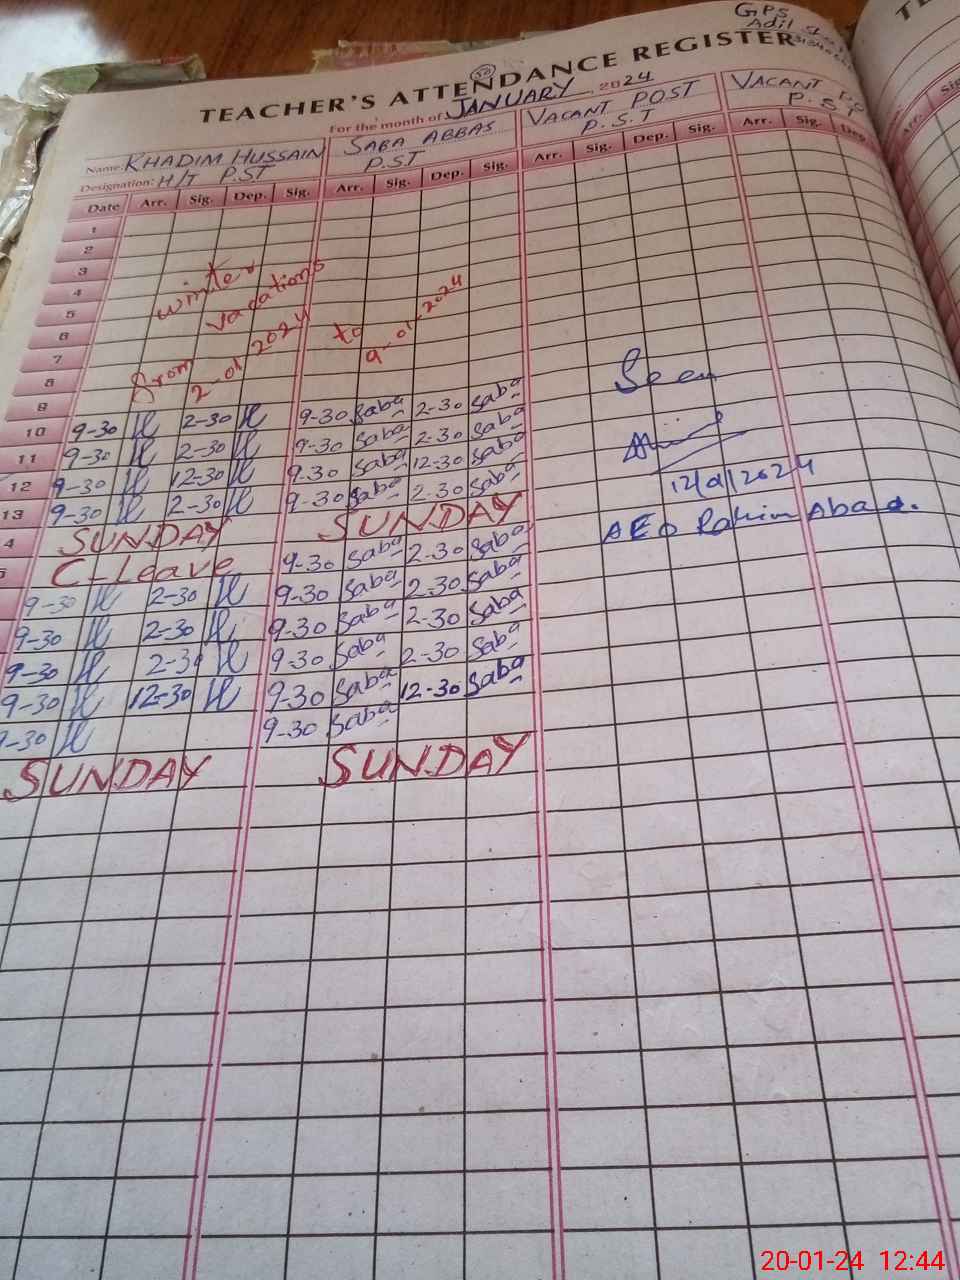 GPS
Adil
52
TEACHER'S ATTENDANCE REGISTER
For the month of JANUARY, 2024
Name: KHADIM HUSSAIN SABA ABBAS VACANT POST VACANT
Designation: H/T P.ST P.ST P.S.T P.S.T
Date Arr. Sig. Dep. Sig. Arr. Sig. Dep. Sig. Arr. Sig. Dep. Sig. Arr. Sig. Dep.
1
2
3
4
5
6
7
8
9
winter
vacations
from 2-01-2024 to 9-01-2024
10 9-30 H 2-30 H 9-30 Saba 2-30 Saba
11 9-30 H 2-30 H 9-30 Saba 2-30 Saba
12 9-30 H 12-30 H 9-30 Saba 12-30 Saba
13 9-30 H 2-30 H 9-30 Saba 2-30 Saba
4 SUNDAY SUNDAY
5 C-Leave 9-30 Saba 2-30 Saba
9-30 H 2-30 H 9-30 Saba 2-30 Saba
9-30 H 2-30 H 9-30 Saba 2-30 Saba
9-30 H 2-30 H 9-30 Saba 2-30 Saba
9-30 H 12-30 H 9-30 Saba 12-30 Saba
9-30 H 9-30 Saba
SUNDAY SUNDAY
Seen
12/01/2024
AEO Rahim Abad.
20-01-24 12:44